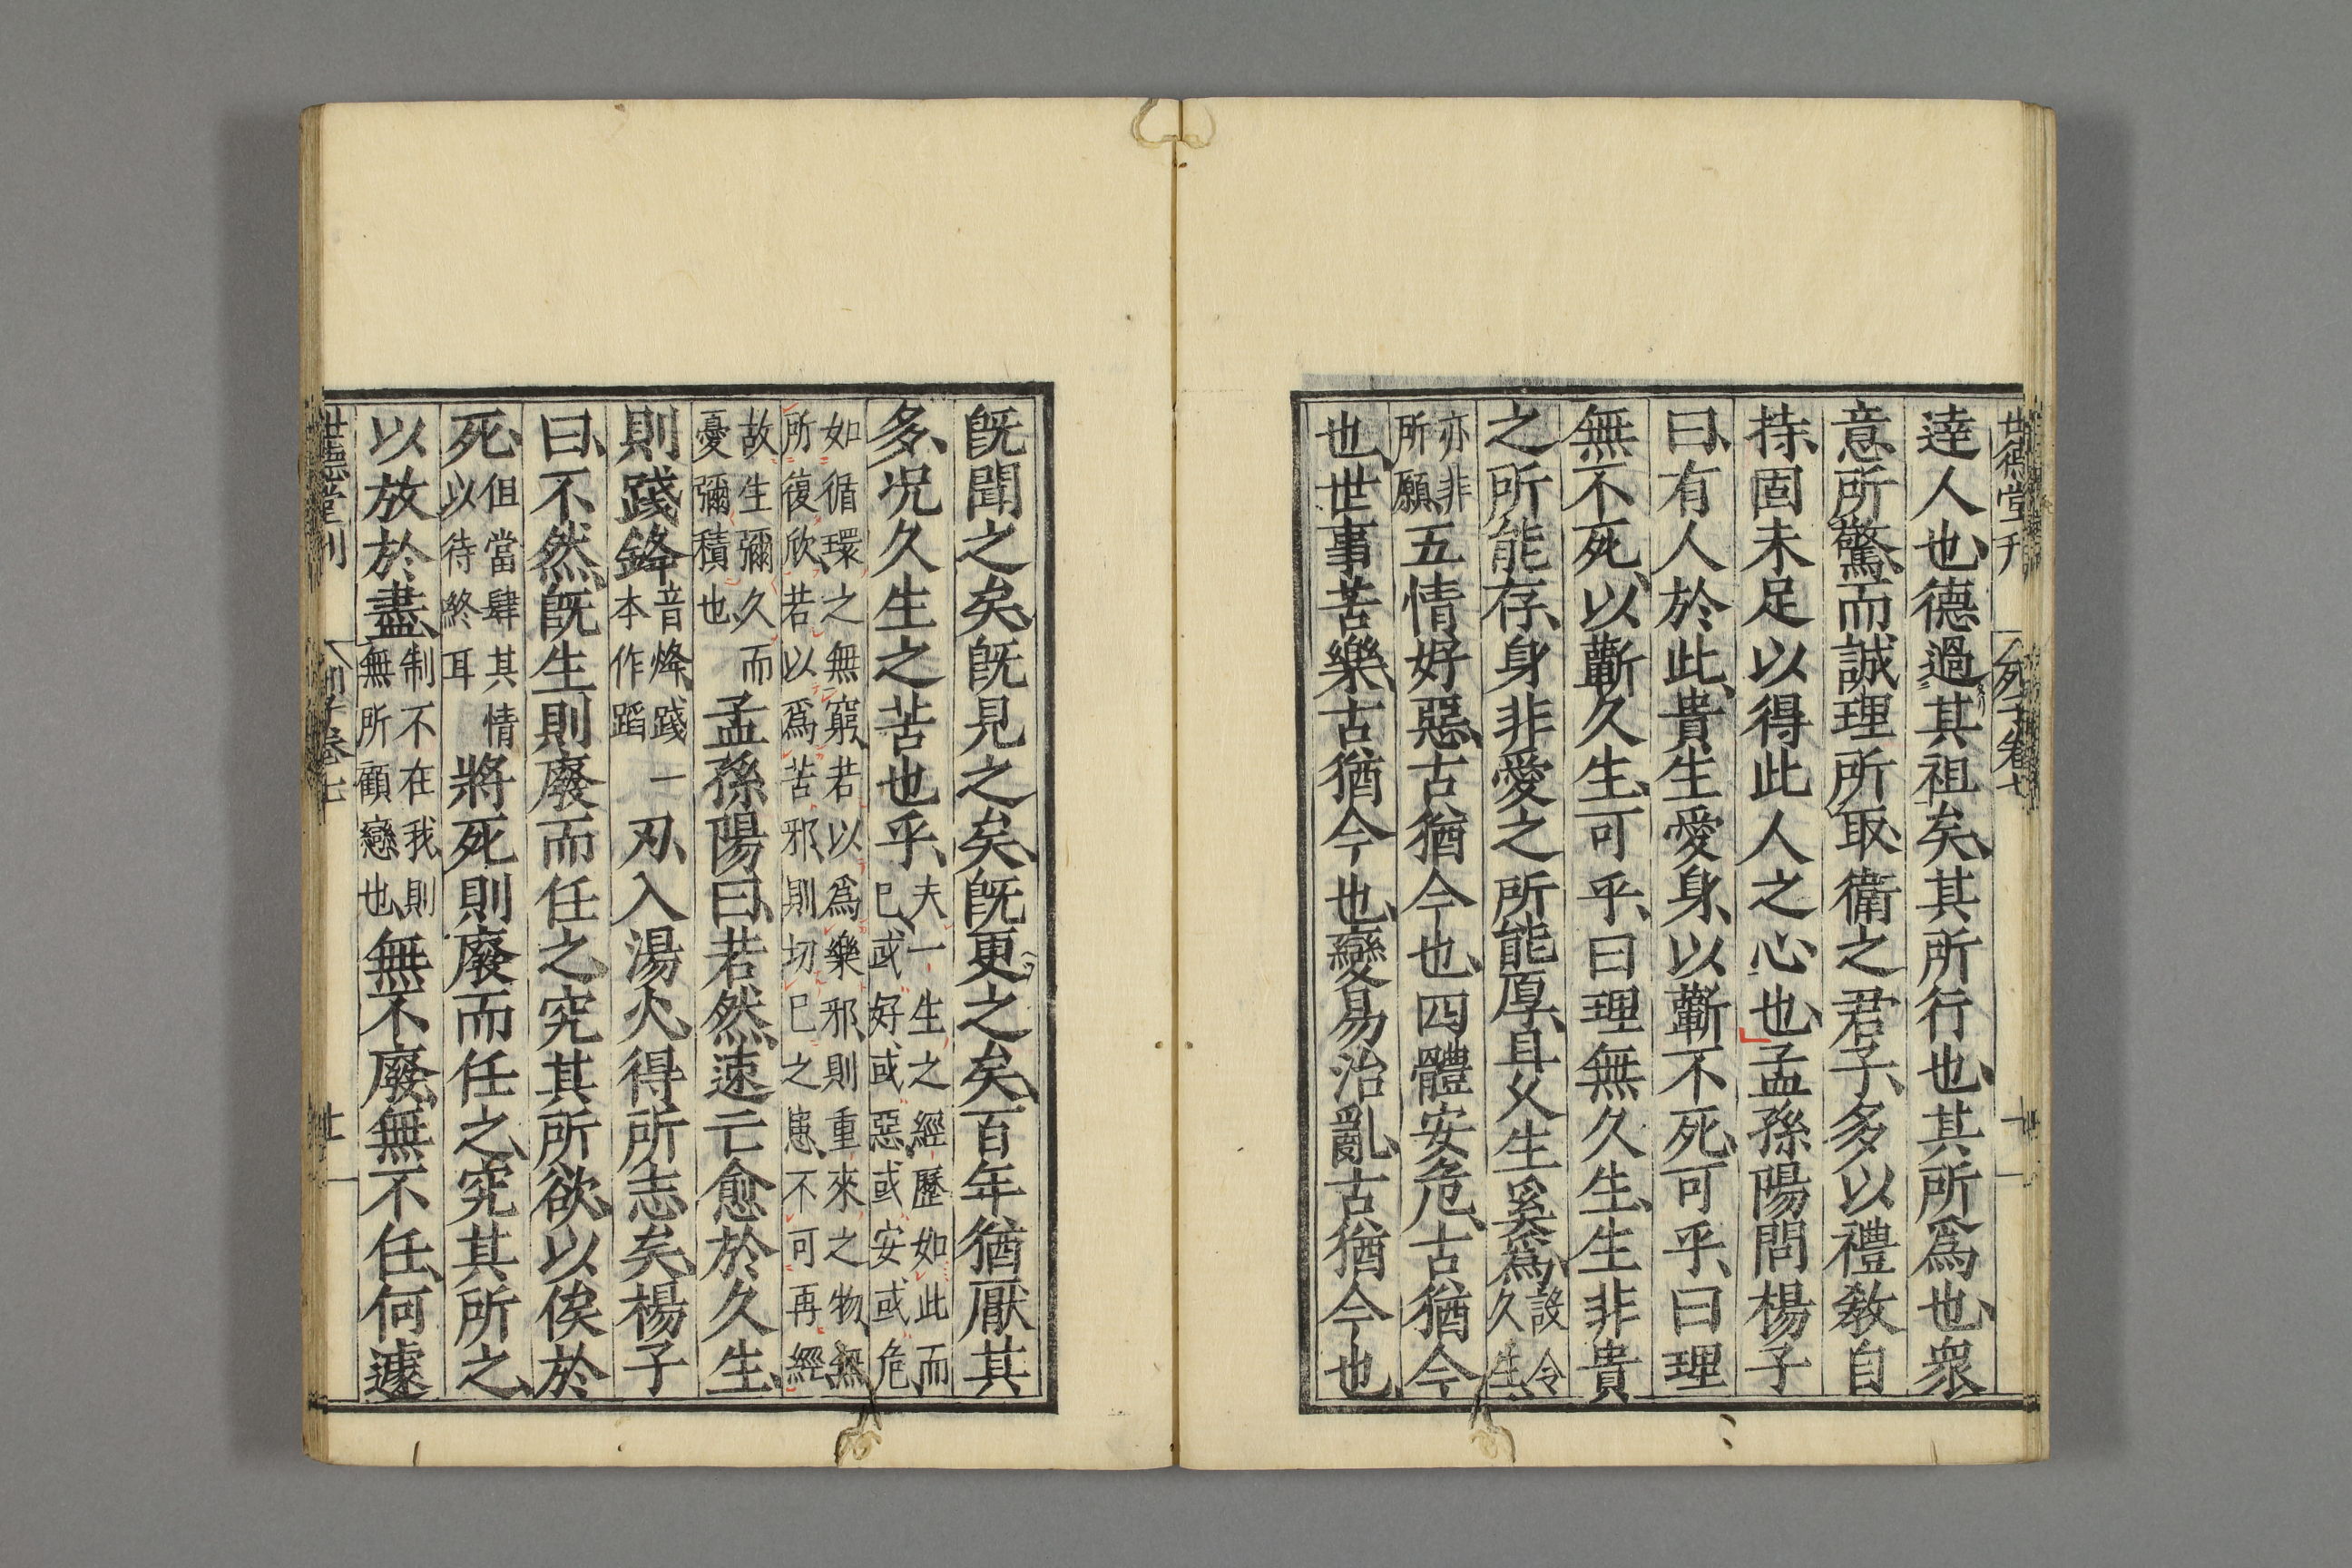 達人也德過其祖矣其所行也其所爲也衆
意所驚而誠理所取衛之君子多以禮教自
持固未足以得此人之心也孟孫陽問楊子
曰有人於此貴生愛身以蘄不死可乎曰理
無不死以蘄久生可乎曰理無久生生非貴
之所能存身非愛之所能厚且久生奚爲設令
久生
亦非
所願五情好惡古猶今也四體安危古猶今
也世事苦樂古猶今也變易治亂古猶今也
既聞之矣既見之矣既更之矣百年猶厭其
多况久生之苦也乎夫一生之經歷如此而
已或好或惡或安或危
如循環之無窮若以爲樂邪則重來之物無
所復欣若以爲苦邪則切已之患不可再經
故生彌久而
憂彌積也孟孫陽曰若然速亡愈於久生
則踐鋒音烽踐一
本作蹈刃入湯火得所志矣楊子
曰不然既生則廢而任之究其所欲以俟於
死但當肆其情
以待終耳將死則廢而任之究其所之
以放於盡制不在我則
無所顧戀也無不廢無不任何遽
世德堂刊
列子卷七